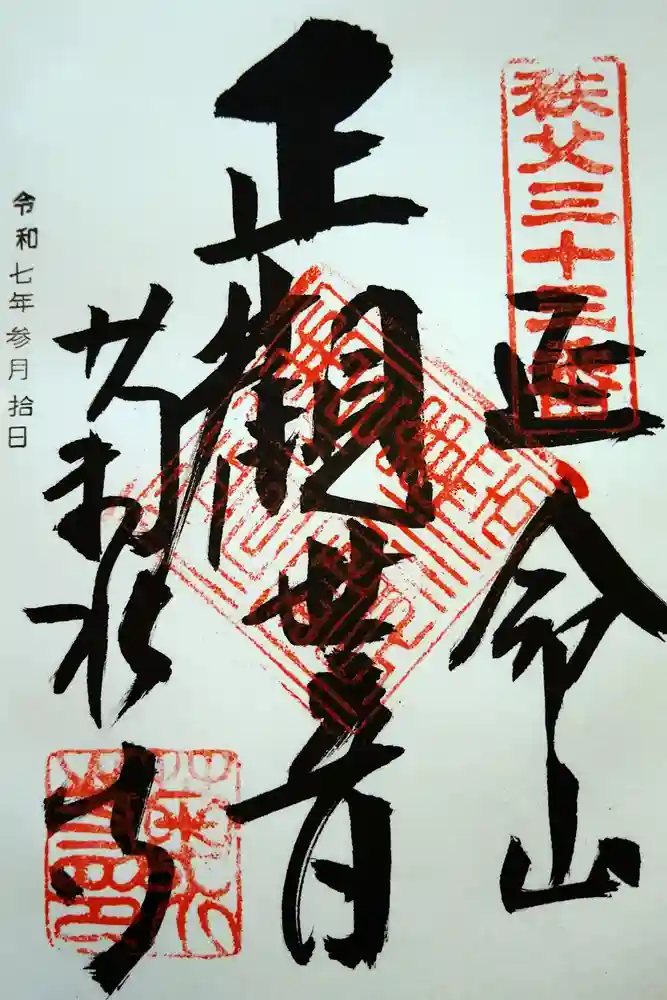 秩父三十三番
延命山
正観世音
菊水寺
令和七年参月拾日